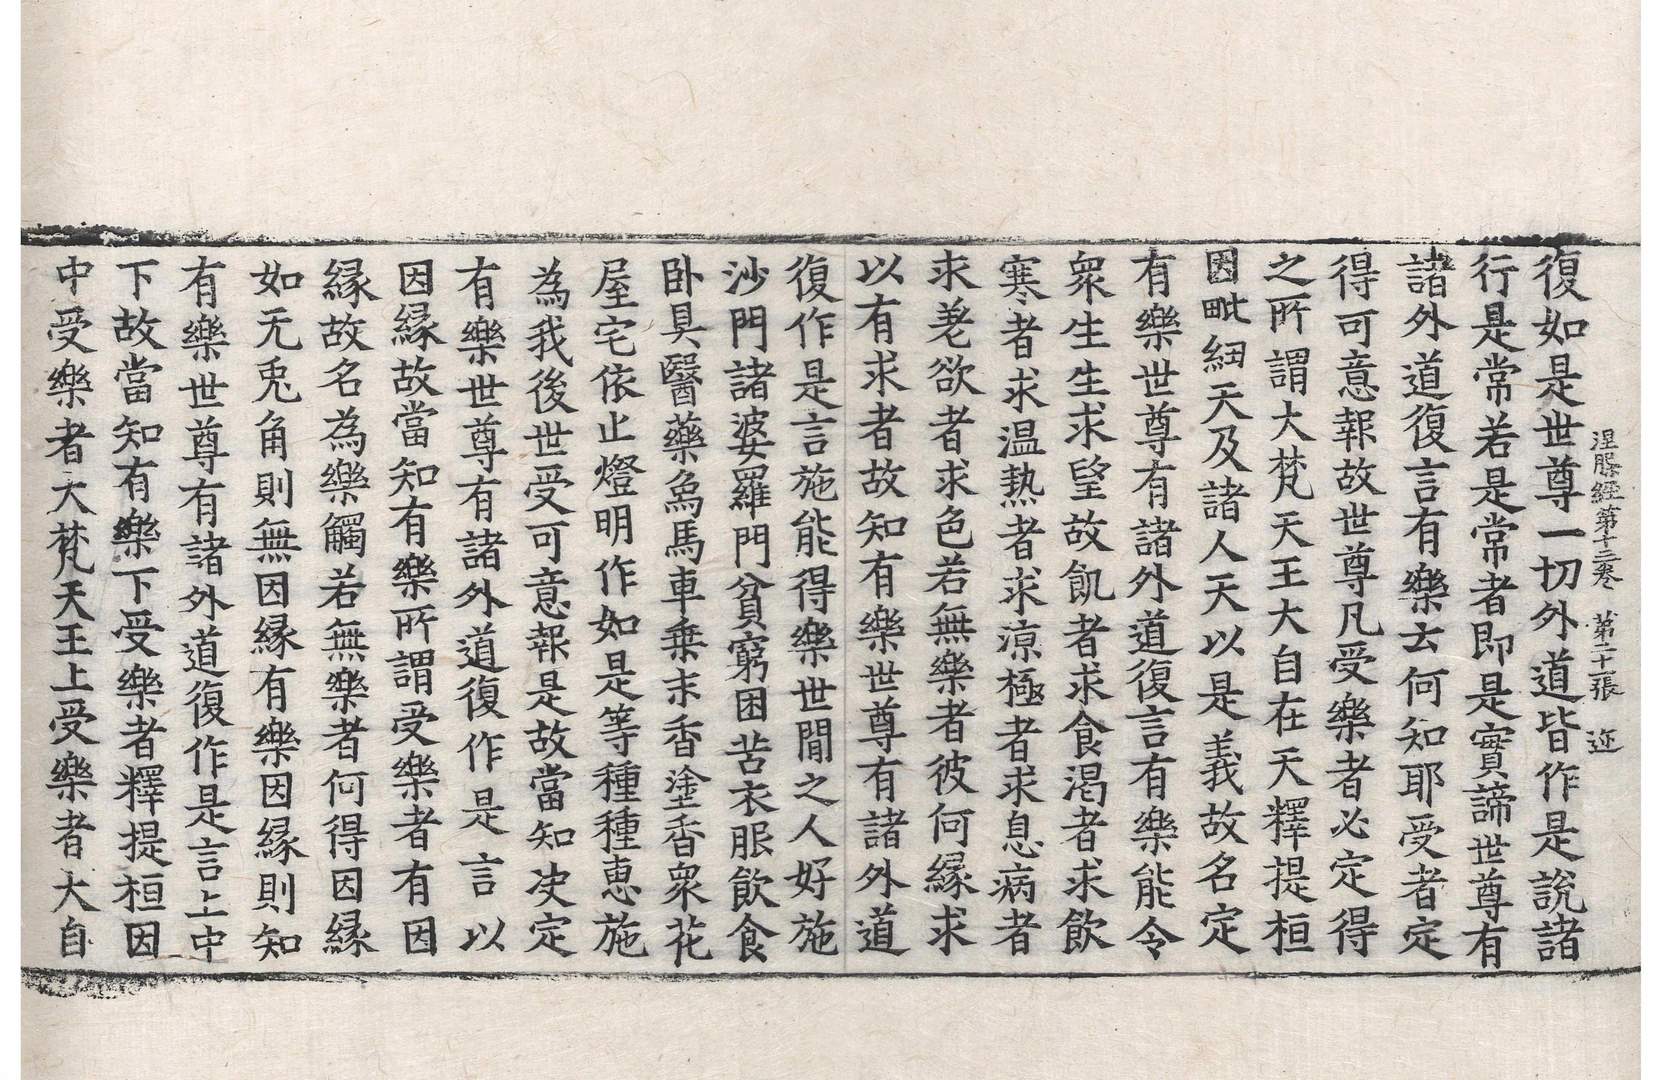 涅槃経第十三卷　第二十一張　迩
復如是世尊一切外道皆作是說諸
行是常若是常者即是實諦世尊有
諸外道復言有樂去何知耶受者定
得可意報故世尊凡受樂者必定得
之所謂大梵天王大自在天釋提桓
因毗紐天及諸人天以是義故名定
有樂世尊有諸外道復言有樂能令
衆生生求望故飢者求食渴者求飲
寒者求温熱者求涼極者求息病者
求差欲者求色若無樂者彼何縁求
以有求者故知有樂世尊有諸外道
復作是言施能得樂世間之人好施
沙門諸婆羅門貧窮困苦衣服飲食
卧具醫藥象馬車乗末香塗香衆花
屋宅依止燈明作如是等種種恵施
為我後世受可意報是故當知决定
有樂世尊有諸外道復作是言以
因縁故當知有樂所謂受樂者有因
縁故名為樂觸若無樂者何得因縁
如无兎角則無因縁有樂因縁則知
有樂世尊有諸外道復作是言上中
下故當知有樂下受樂者釋提桓因
中受樂者大梵天王上受樂者大自